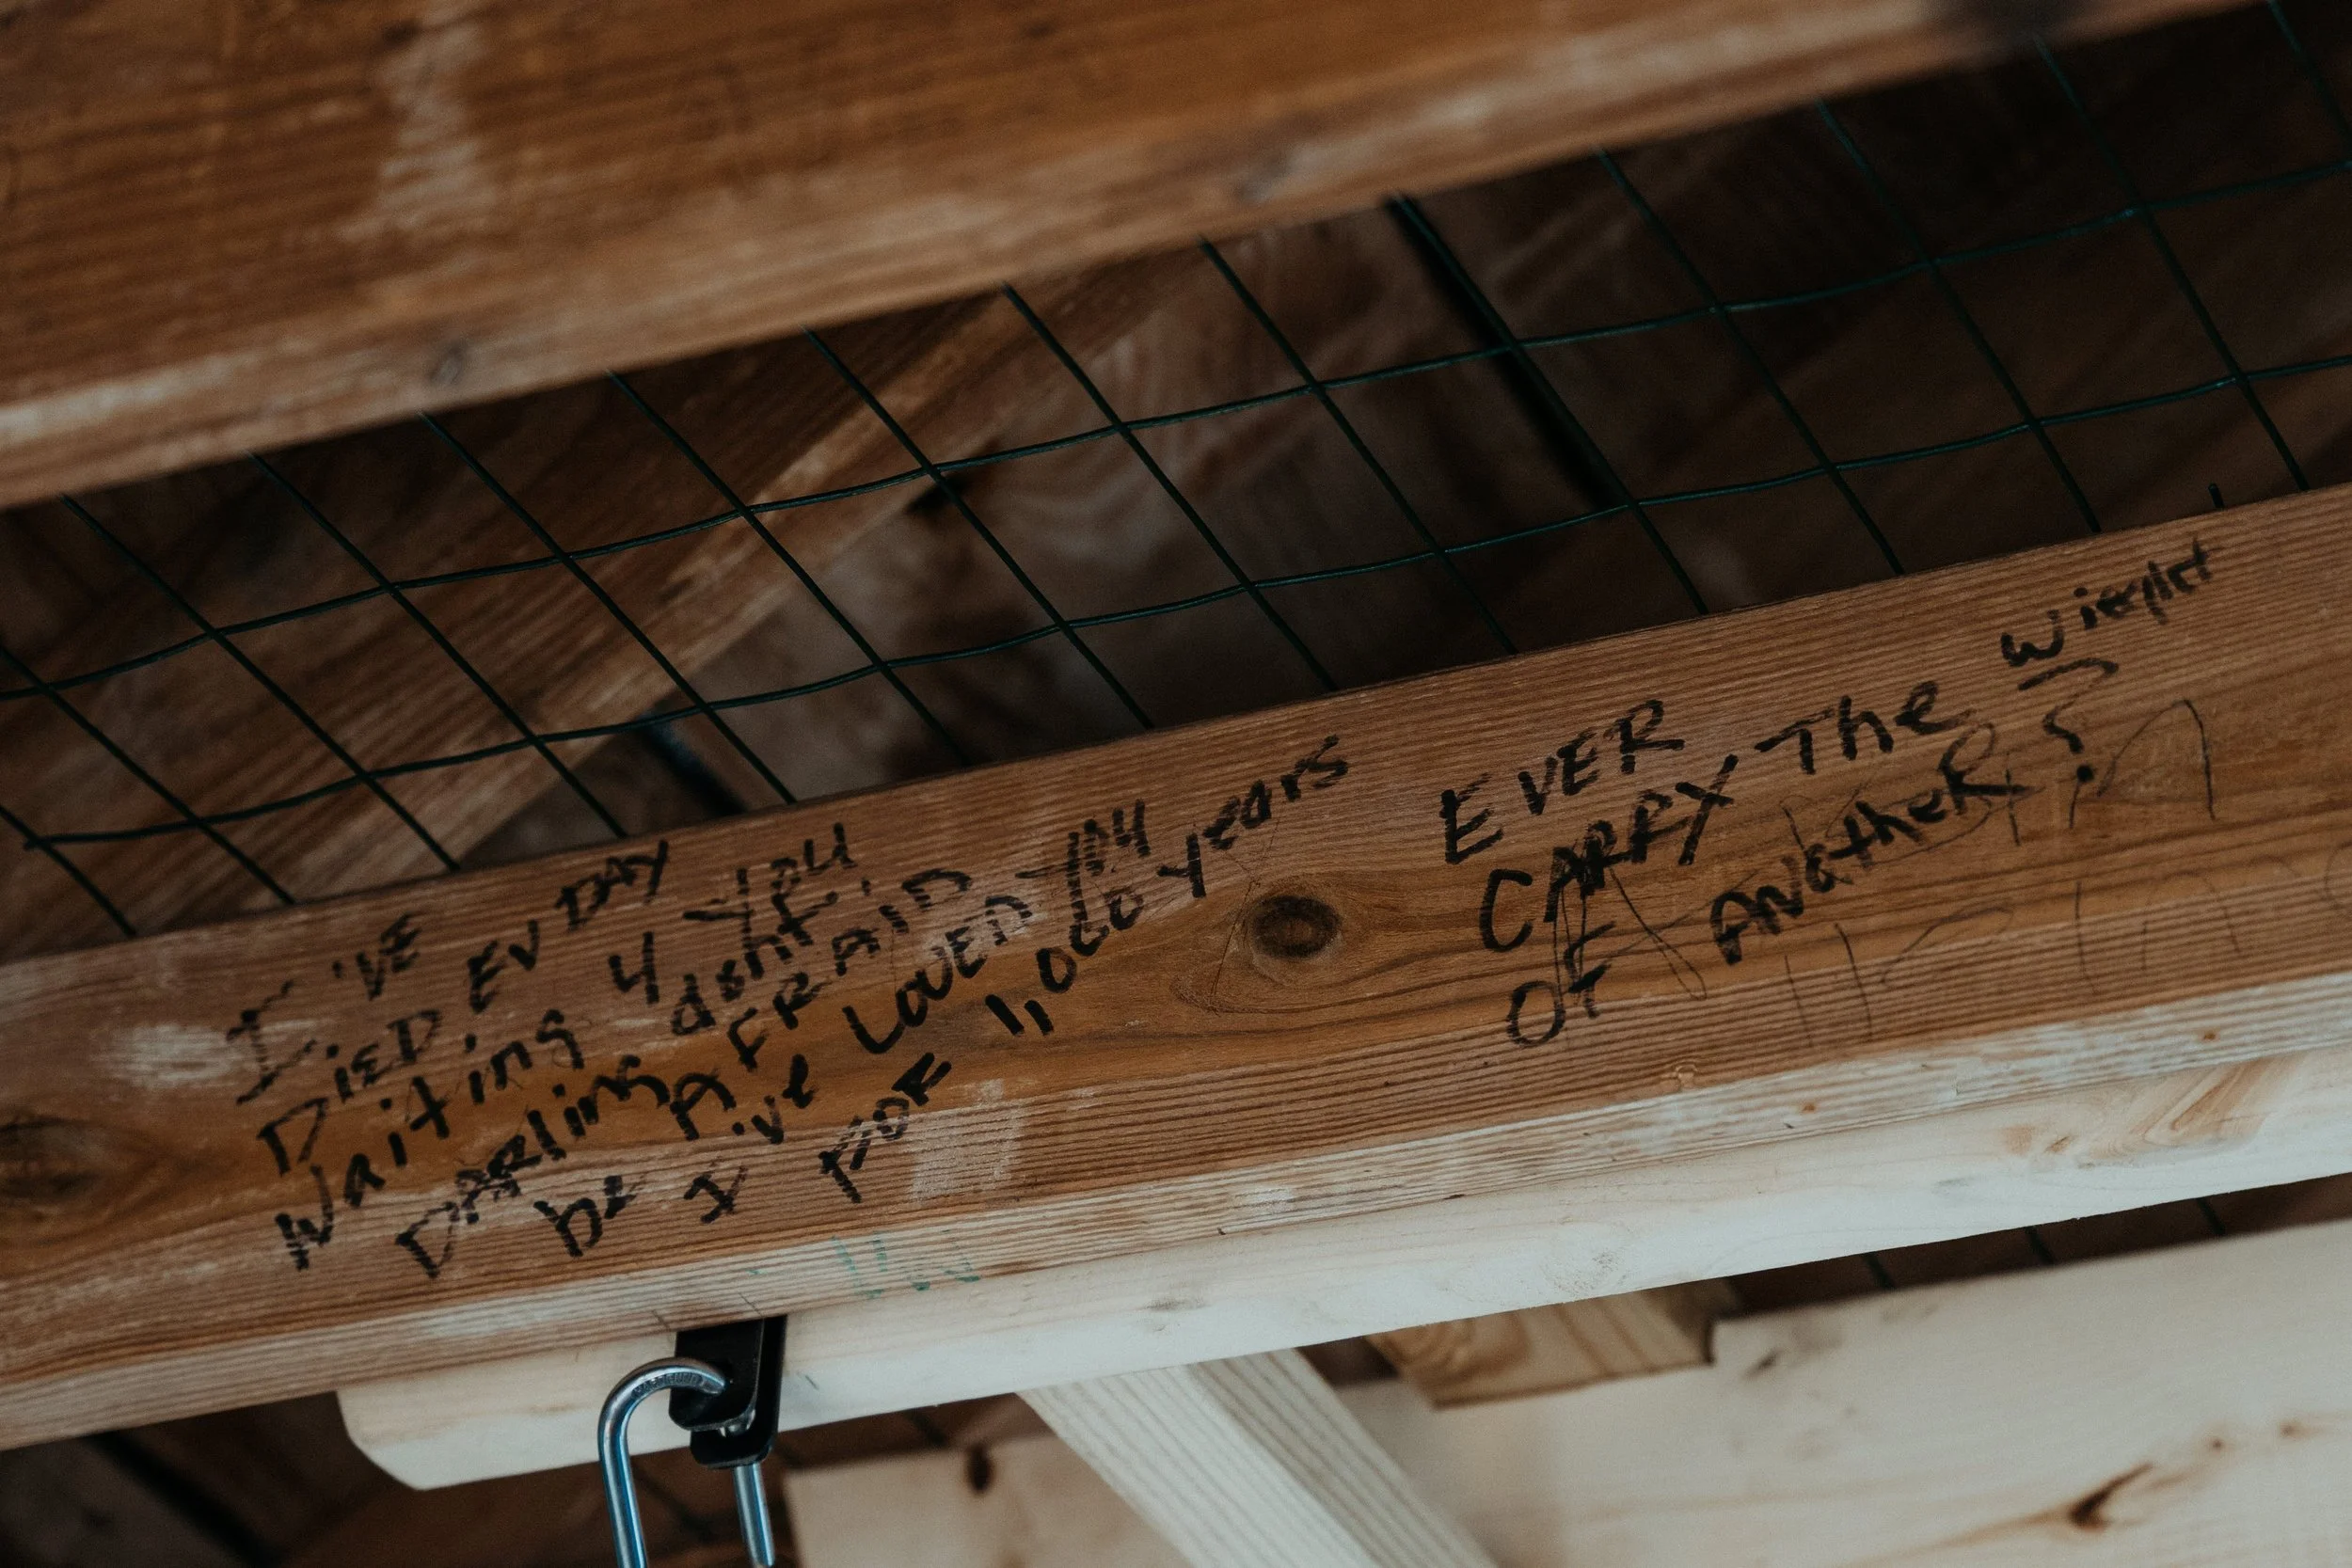 I'VE
DiED EV DAY
Waiting 4 you
DARling dont
be AFRAID
I've LOVED you
FOR 1,000 years
EVER
CARRY The wieght
OF ANotheR ?